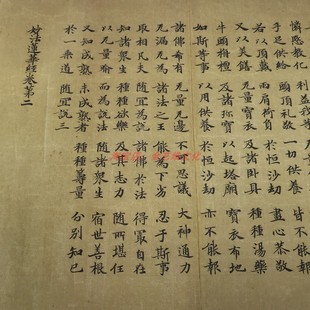 憐愍教化 利益我
手足供給 頭頂禮敬 一切供養 皆不能報
若以頂戴 兩肩荷負 於恒沙劫 盡心恭敬
又以美饍 无量寶衣 及諸卧具 種種湯藥
牛頭栴檀 及諸珍寶 以起塔廟 寶衣布地
如斯等事 以用供養 於恒沙劫 亦不能報
諸佛希有 无量无邊 不可思議 大神通力
无漏无為 諸法之王 能為下劣 忍于斯事
取相凡夫 隨宜為說 諸佛於法 得最自在
知諸衆生 種種欲樂 及其志力 隨所堪任
以无量喻 而為說法 隨諸衆生 宿世善根
又知成熟 未成熟者 種種籌量 分別知已
於一乘道 隨宜說三
妙法蓮華經卷第二